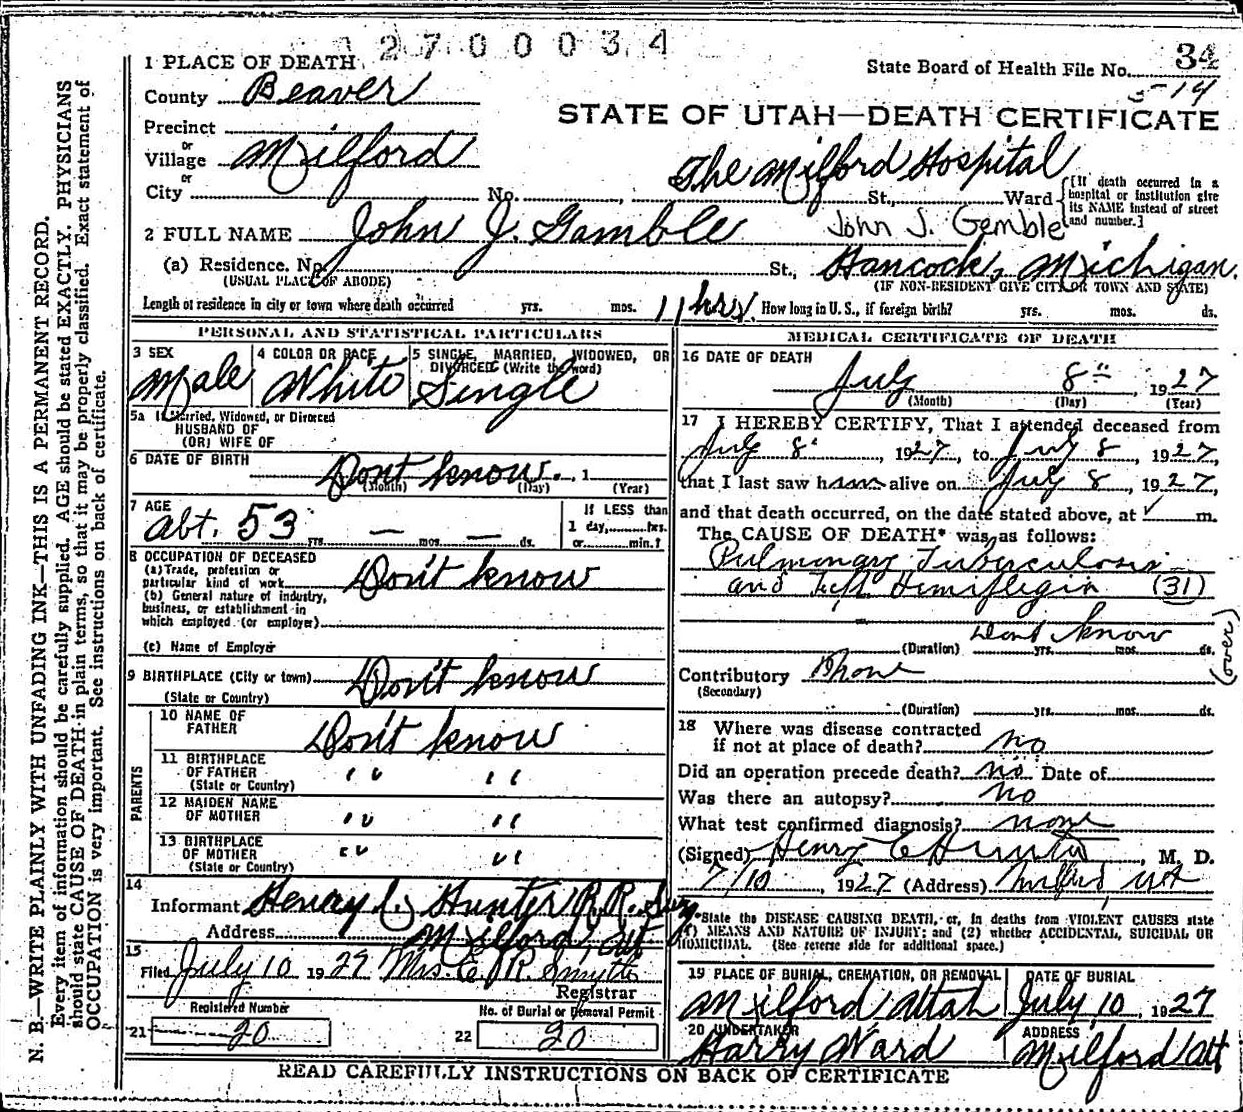 2700034
34
State Board of Health File No.
5-14
STATE OF UTAH—DEATH CERTIFICATE
1 PLACE OF DEATH
County Beaver
Precinct
or
Village Milford
or
City No. The Milford Hospital St., Ward
[If death occurred in a hospital or institution give its NAME instead of street and number.]
2 FULL NAME John J. Gamble John J. Gemble
(a) Residence. No. St., Hancock, Michigan.
(USUAL PLACE OF ABODE) (IF NON-RESIDENT GIVE CITY OR TOWN AND STATE)
Length of residence in city or town where death occurred yrs. mos. 11 hrs. How long in U. S., if foreign birth? yrs. mos. ds.
PERSONAL AND STATISTICAL PARTICULARS
3 SEX 4 COLOR OR RACE 5 SINGLE, MARRIED, WIDOWED, OR
DIVORCED (Write the word)
Male White Single
5a If Married, Widowed, or Divorced
HUSBAND OF
(OR) WIFE OF
6 DATE OF BIRTH Dont know. 1
(Month) (Day) (Year)
7 AGE If LESS than
abt. 53 yrs. — mos. — ds. 1 day, hrs.
or min.?
8 OCCUPATION OF DECEASED
(a) Trade, profession or
particular kind of work Don't know
(b) General nature of industry,
business, or establishment in
which employed (or employer)
(c) Name of Employer
9 BIRTHPLACE (City or town) Don't know
(State or Country)
PARENTS
10 NAME OF
FATHER Don't know
11 BIRTHPLACE
OF FATHER " "
(State or Country)
12 MAIDEN NAME
OF MOTHER " "
13 BIRTHPLACE
OF MOTHER " "
(State or Country)
14
Informant Henry C. Hunter R.R. Surg.
Address Milford, Ut
15
Filed July 10 1927 Mrs. E. R. Smyth
Registrar
Registered Number No. of Burial or Removal Permit
21 20 22 20
MEDICAL CERTIFICATE OF DEATH
16 DATE OF DEATH
July 8" 1927
(Month) (Day) (Year)
17 I HEREBY CERTIFY, That I attended deceased from
July 8, 1927, to July 8, 1927,
that I last saw him alive on July 8, 1927,
and that death occurred, on the date stated above, at m.
The CAUSE OF DEATH* was as follows:
Pulmonary Tuberculosis
and Left Hemiplegia (31)
Dont know
(Duration) yrs. mos. ds.
(over)
Contributory None
(Secondary)
(Duration) yrs. mos. ds.
18 Where was disease contracted
if not at place of death? no
Did an operation precede death? no Date of
Was there an autopsy? no
What test confirmed diagnosis? none
(Signed) Henry C Hunter, M. D.
7/10, 1927 (Address) Milford Utah
*State the DISEASE CAUSING DEATH, or, in deaths from VIOLENT CAUSES state
(1) MEANS AND NATURE OF INJURY; and (2) whether ACCIDENTAL, SUICIDAL OR
HOMICIDAL. (See reverse side for additional space.)
19 PLACE OF BURIAL, CREMATION, OR REMOVAL DATE OF BURIAL
Milford Utah July 10, 1927
20 UNDERTAKER ADDRESS
Harry Ward Milford Ut
READ CAREFULLY INSTRUCTIONS ON BACK OF CERTIFICATE
N. B.—WRITE PLAINLY WITH UNFADING INK—THIS IS A PERMANENT RECORD.
Every item of information should be carefully supplied. AGE should be stated EXACTLY. PHYSICIANS
should state CAUSE OF DEATH in plain terms, so that it may be properly classified. Exact statement of
OCCUPATION is very important. See instructions on back of certificate.